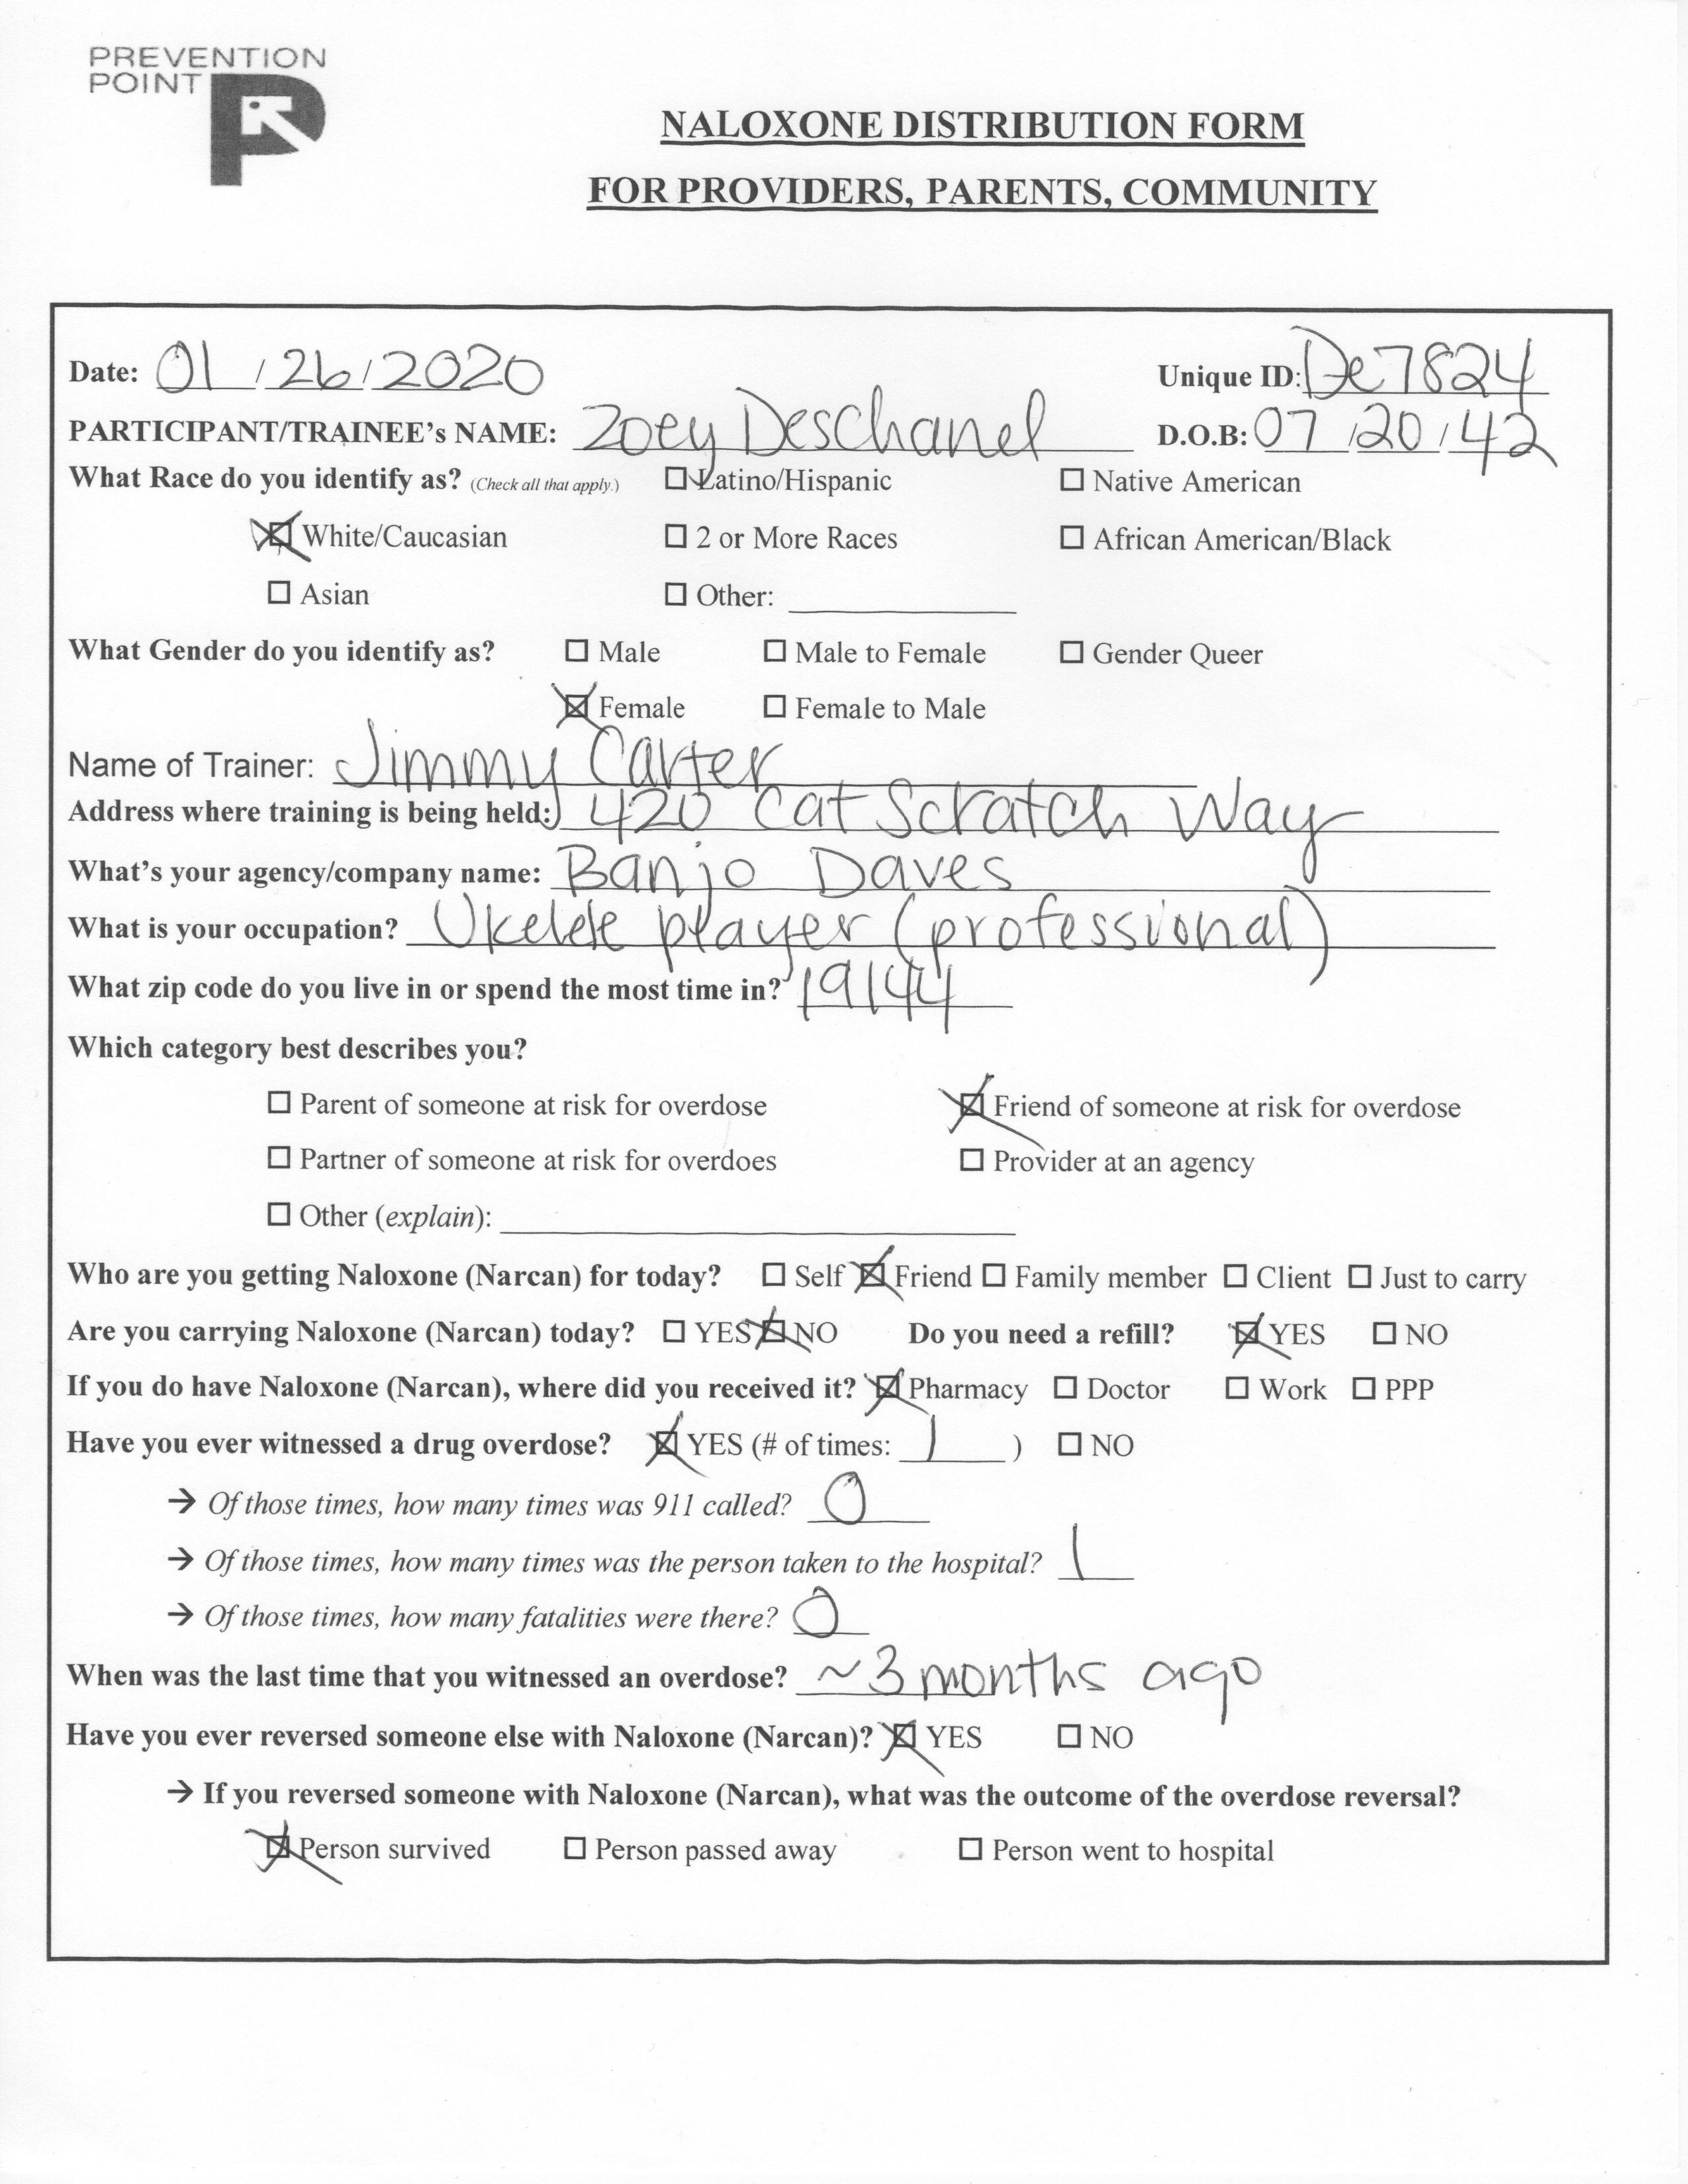 PREVENTION
POINT
NALOXONE DISTRIBUTION FORM
FOR PROVIDERS, PARENTS, COMMUNITY
Date: 01 / 26 / 2020 Unique ID: De7824
PARTICIPANT/TRAINEE's NAME: Zoey Deschanel D.O.B: 07 / 20 / 42
What Race do you identify as? (Check all that apply.) ☐ Latino/Hispanic ☐ Native American
☒ White/Caucasian ☐ 2 or More Races ☐ African American/Black
☐ Asian ☐ Other:
What Gender do you identify as? ☐ Male ☐ Male to Female ☐ Gender Queer
☒ Female ☐ Female to Male
Name of Trainer: Jimmy Carter
Address where training is being held: 420 Cat Scratch Way
What's your agency/company name: Banjo Daves
What is your occupation? Ukelele player (professional)
What zip code do you live in or spend the most time in? 19144
Which category best describes you?
☐ Parent of someone at risk for overdose ☒ Friend of someone at risk for overdose
☐ Partner of someone at risk for overdoes ☐ Provider at an agency
☐ Other (explain):
Who are you getting Naloxone (Narcan) for today? ☐ Self ☒ Friend ☐ Family member ☐ Client ☐ Just to carry
Are you carrying Naloxone (Narcan) today? ☐ YES ☒ NO Do you need a refill? ☒ YES ☐ NO
If you do have Naloxone (Narcan), where did you received it? ☒ Pharmacy ☐ Doctor ☐ Work ☐ PPP
Have you ever witnessed a drug overdose? ☒ YES (# of times: 1 ) ☐ NO
→ Of those times, how many times was 911 called? 0
→ Of those times, how many times was the person taken to the hospital? 1
→ Of those times, how many fatalities were there? 0
When was the last time that you witnessed an overdose? ~3 months ago
Have you ever reversed someone else with Naloxone (Narcan)? ☒ YES ☐ NO
→ If you reversed someone with Naloxone (Narcan), what was the outcome of the overdose reversal?
☒ Person survived ☐ Person passed away ☐ Person went to hospital